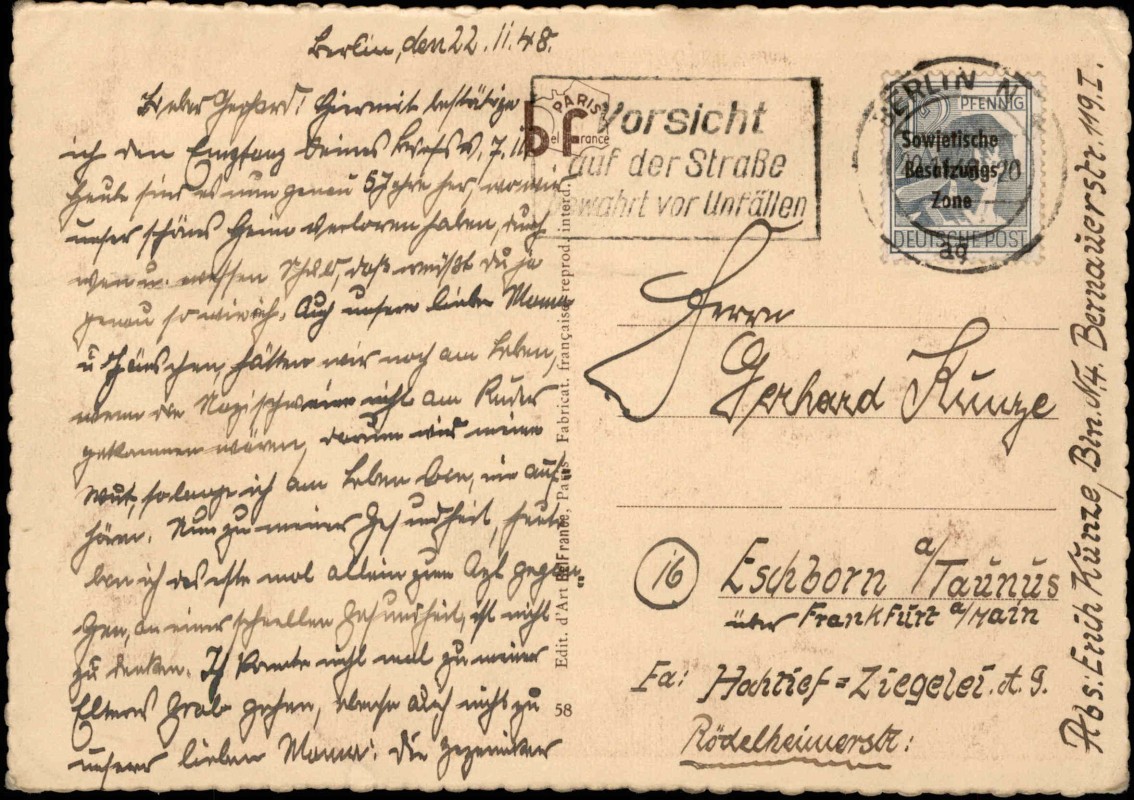 Berlin, den 22.11.48.
Lieber Gerhard! Hiermit bestätige
ich den Empfang Deines Briefs v. 7.11.
Heute sind es nun genau 5 Jahre her, wo wir
unser schönes Heim verloren haben, durch
wen u. wessen Schuld, daß weißt Du ja
genau so wie ich. Auch unsere liebe Mama
u. Hänschen, hätten wir noch am Leben,
wenn die Nazischweine nicht am Ruder
gekommen wären, darum wird meine
Wut, solange ich am Leben bin, nie auf-
hören. Nun zu meiner Gesundheit, heute
bin ich das erste mal allein zum Arzt gegan-
gen, an einer schnellen Gesundheit, ist nicht
zu denken. Ich konnte nicht mal zu meiner
Eltern Grab gehen, ebenso auch nicht zu
unserer lieben Mama. Die
PARIS
bf
bel france
Vorsicht
auf der Straße
bewahrt vor Unfällen
BERLIN N
PFENNIG
Sowjetische
Besatzungs
Zone
DEUTSCHE POST
ag
Edit. d'Art Bel France, Paris Fabricat. française reprod. interd.
58
Herrn
Gerhard Kunze
16 Eschborn a/Taunus
über Frankfurt a/Main
Fa: Hochtief=Ziegelei. A. G.
Rödelheimerstr:
Abs: Erich Kunze, Bln. N.4. Bernauerstr. 119. I.